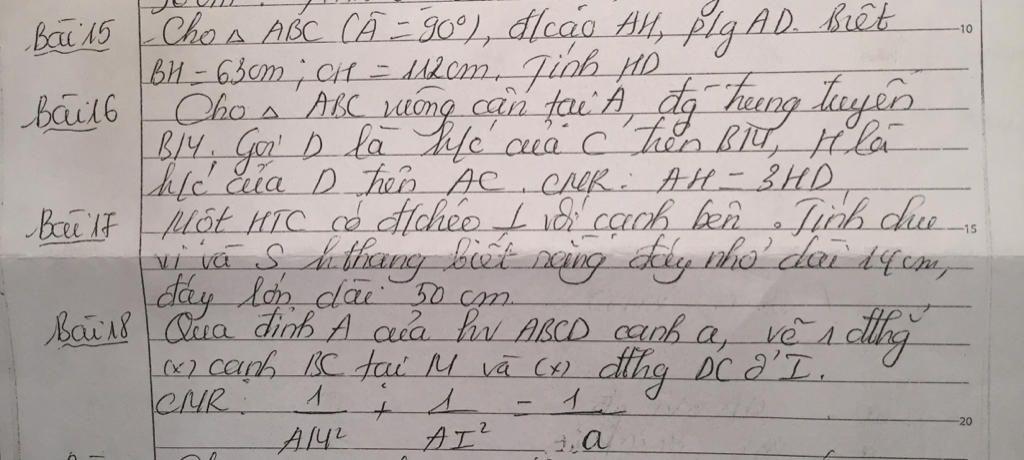 Bài 15 Cho △ ABC (Â = 90°), đ/cao AH, p/g AD. Biết
BH = 63cm; CH = 112cm. Tính HD
Bài 16 Cho △ ABC vuông cân tại A, đg trung tuyến
BM. Gọi D là h/c của C trên BM, H là
h/c của D trên AC. CMR: AH = 3HD
Bài 17 Một HTC có đ/chéo ⊥ với cạnh bên. Tính chu
vi và S h.thang biết rằng đáy nhỏ dài 14cm,
đáy lớn dài 50 cm.
Bài 18 Qua đỉnh A của hv ABCD cạnh a, vẽ 1 đthg
(x) cạnh BC tại M và (x) đthg DC ở I.
CMR: 1/AM² + 1/AI² = 1/a
10
15
20